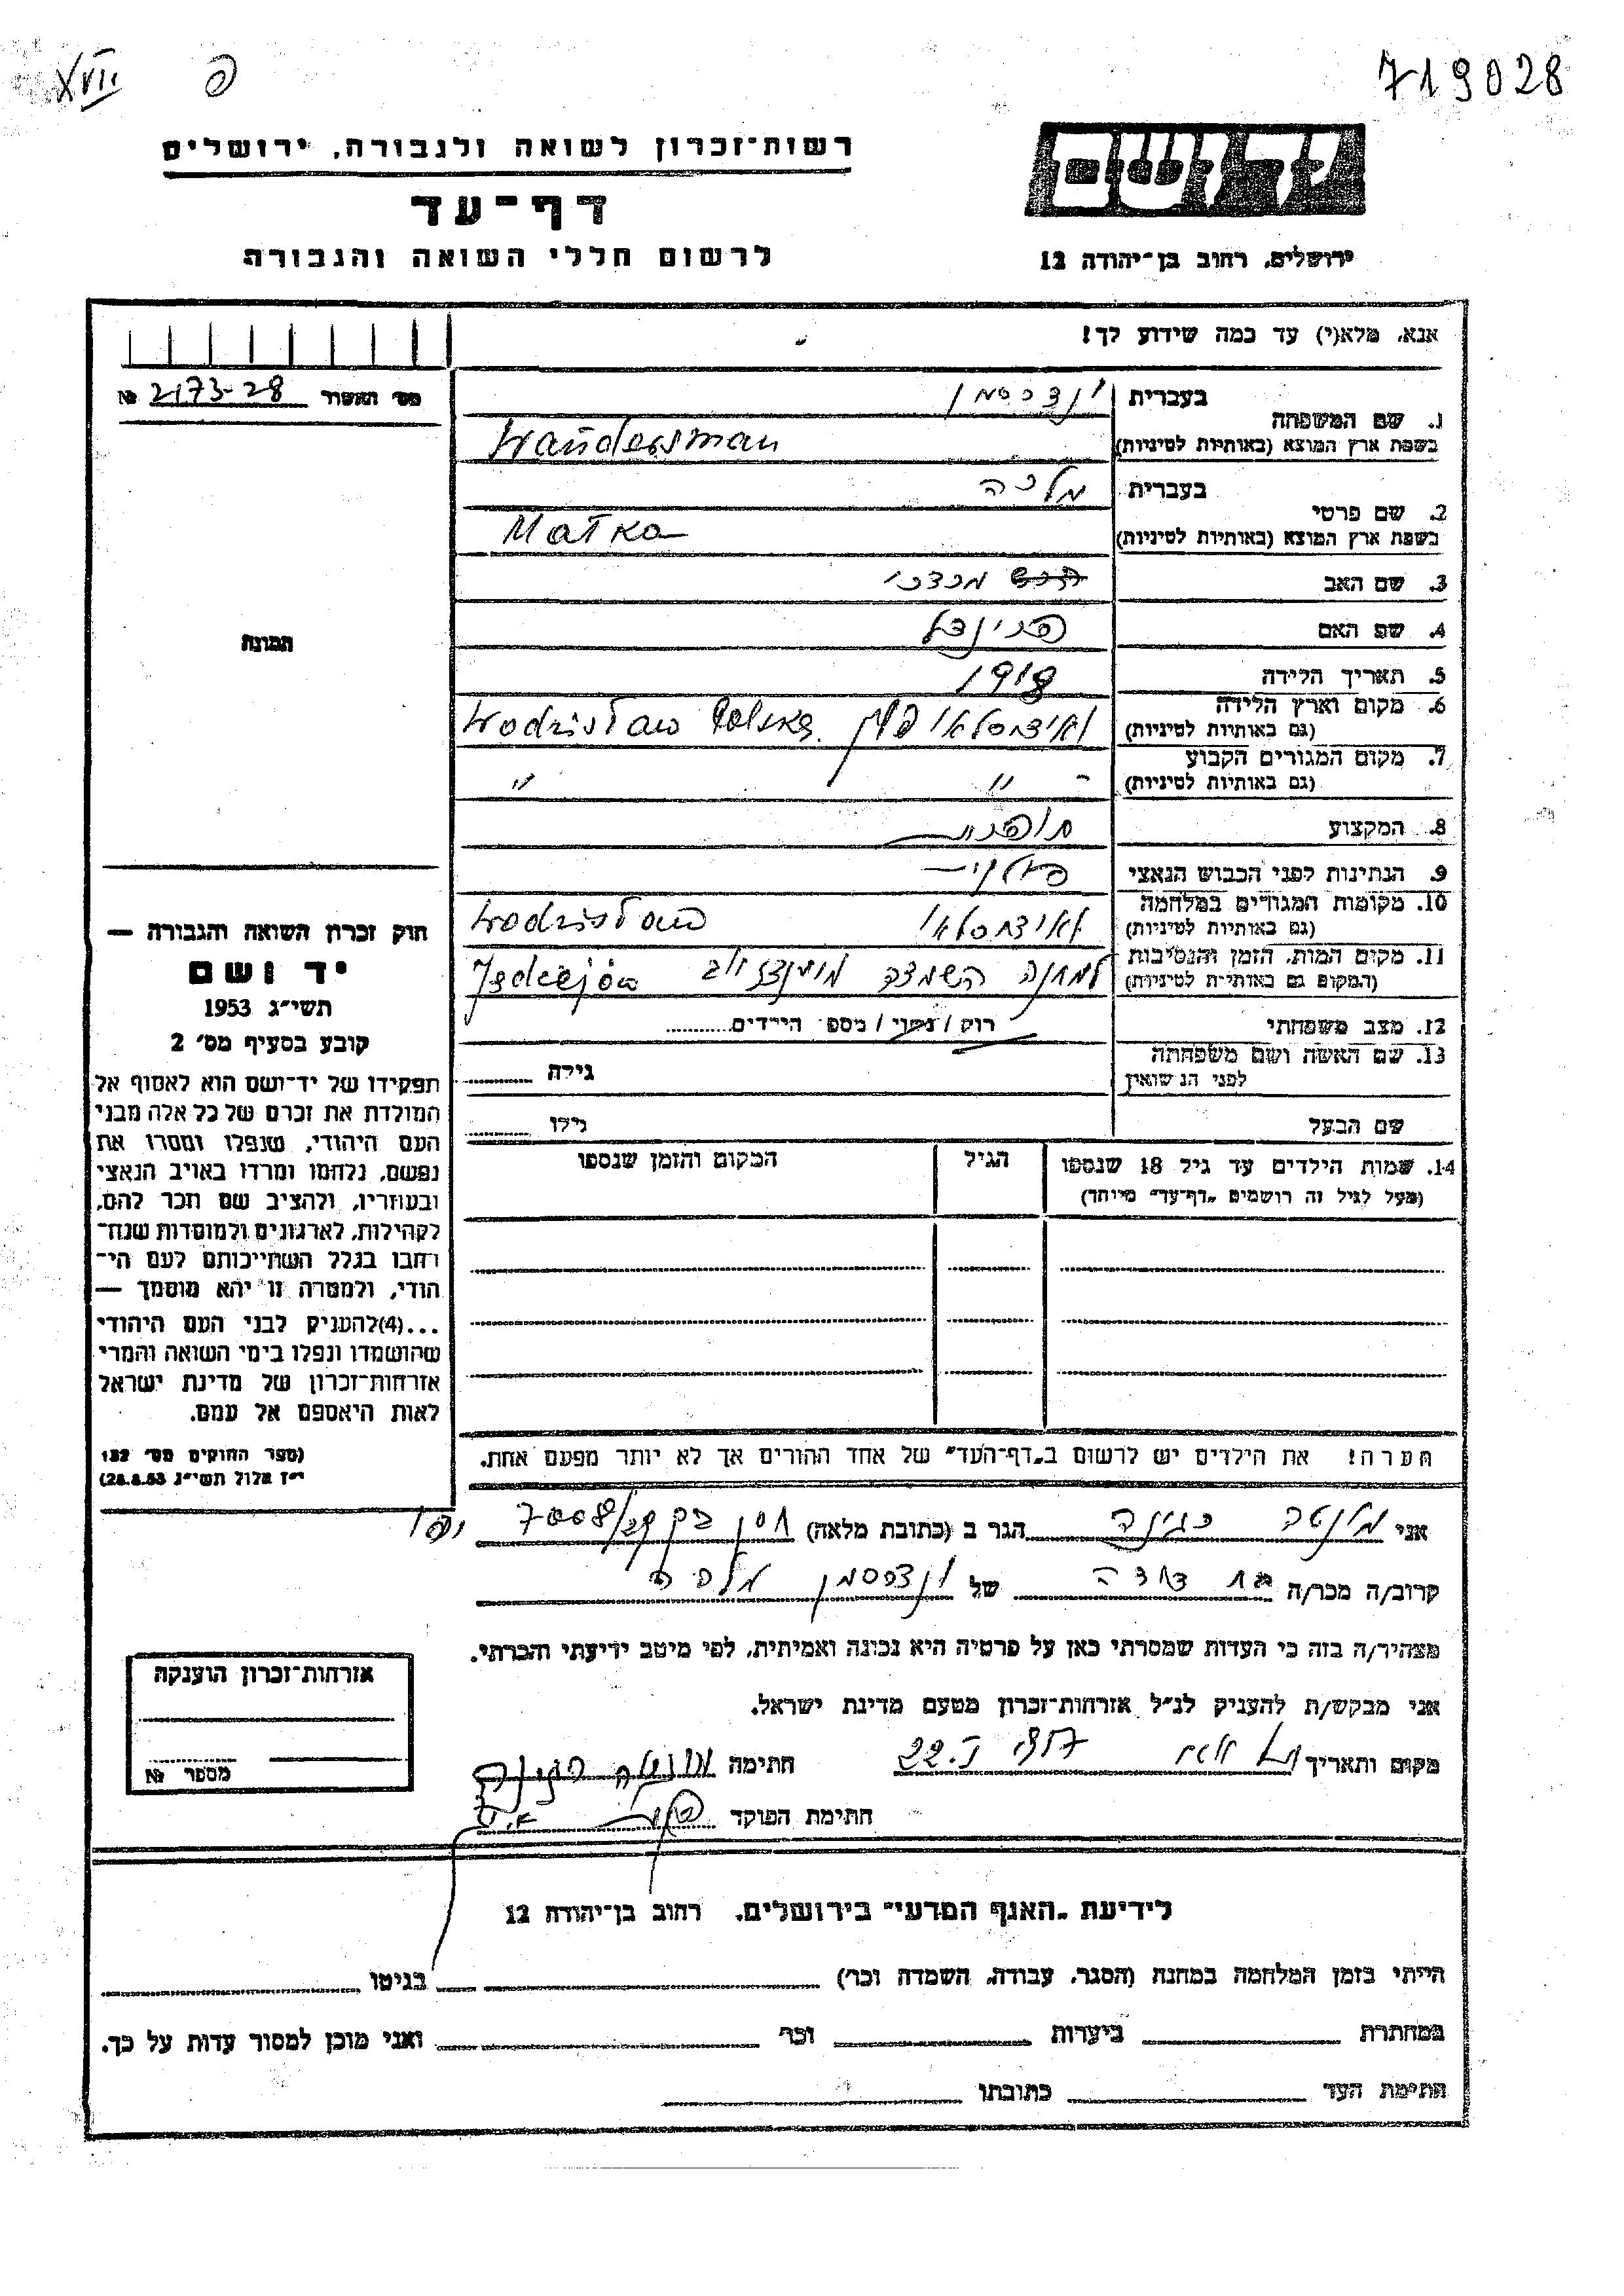 XVII פ 719028
יד ושם
רשות-זכרון לשואה ולגבורה, ירושלים
דף-עד
לרשום חללי השואה והגבורה
ירושלים, רחוב בן-יהודה 12
אנא, מלא(י) עד כמה שידוע לך!
מס' האשור 2173-28 №
1. שם המשפחה
בעברית ונדרסמן
בשפת ארץ המוצא (באותיות לטיניות) Wandersman
2. שם פרטי
בעברית מלכה
בשפת ארץ המוצא (באותיות לטיניות) Małka
3. שם האב מרדכי
4. שם האם פריינדל
5. תאריך הלידה 1918
6. מקום וארץ הלידה
(גם באותיות לטיניות) פולין Wodzisław Polska
7. מקום המגורים הקבוע
(גם באותיות לטיניות) - " "
8. המקצוע תופרת
9. הנתינות לפני הכבוש הנאצי פולנית
10. מקומות המגורים במלחמה
(גם באותיות לטיניות) Wodzisław
11. מקום המות, הזמן והנסיבות
(המקום גם באותיות לטיניות) למחנה השמדה Jędrzejów
12. מצב משפחתי רווק / נשוי / מספר הילדים
13. שם האשה ושם משפחתה
לפני הנשואין גילה
שם הבעל גילו
14. שמות הילדים עד גיל 18 שנספו
(מעל לגיל זה רושמים "דף-עד" מיוחד)
הגיל
המקום והזמן שנספו
הערה! את הילדים יש לרשום ב"דף-העד" של אחד ההורים אך לא יותר מפעם אחת.
תמונה
חוק זכרון השואה והגבורה —
יד ושם
תשי"ג 1953
קובע בסעיף מס' 2
תפקידו של יד-ושם הוא לאסוף אל
המולדת את זכרם של כל אלה מבני
העם היהודי, שנפלו ומסרו את
נפשם, נלחמו ומרדו באויב הנאצי
ובעוזריו, ולהציב שם וזכר להם,
לקהילות, לארגונים ולמוסדות שנח-
רבו בגלל השתייכותם לעם הי-
הודי, ולמטרה זו יהא מוסמך —
...(4) להעניק לבני העם היהודי
שהושמדו ונפלו בימי השואה והמרי
אזרחות-זכרון של מדינת ישראל
לאות היאספם אל עמם.
(ספר החוקים מס' 132
י"ז אלול תשי"ג 28.8.53)
אני רגינה הגר ב (כתובת מלאה) 7008/29 יפו
קרוב/ה מכר/ה בת דודה של ונדרסמן מלכה
מצהיר/ה בזה כי העדות שמסרתי כאן על פרטיה היא נכונה ואמיתית, לפי מיטב ידיעתי והכרתי.
אני מבקש/ת להעניק לנ"ל אזרחות-זכרון מטעם מדינת ישראל.
מקום ותאריך תל אביב 22.I. חתימה
חתימת הפוקד
אזרחות-זכרון הוענקה
מספר №
לידיעת "האגף המדעי" בירושלים, רחוב בן-יהודה 12
הייתי בזמן המלחמה במחנה (הסגר, עבודה, השמדה וכר') בגיטו
במחתרת ביערות וכר' ואני מוכן למסור עדות על כך.
חתימת העד כתובתו